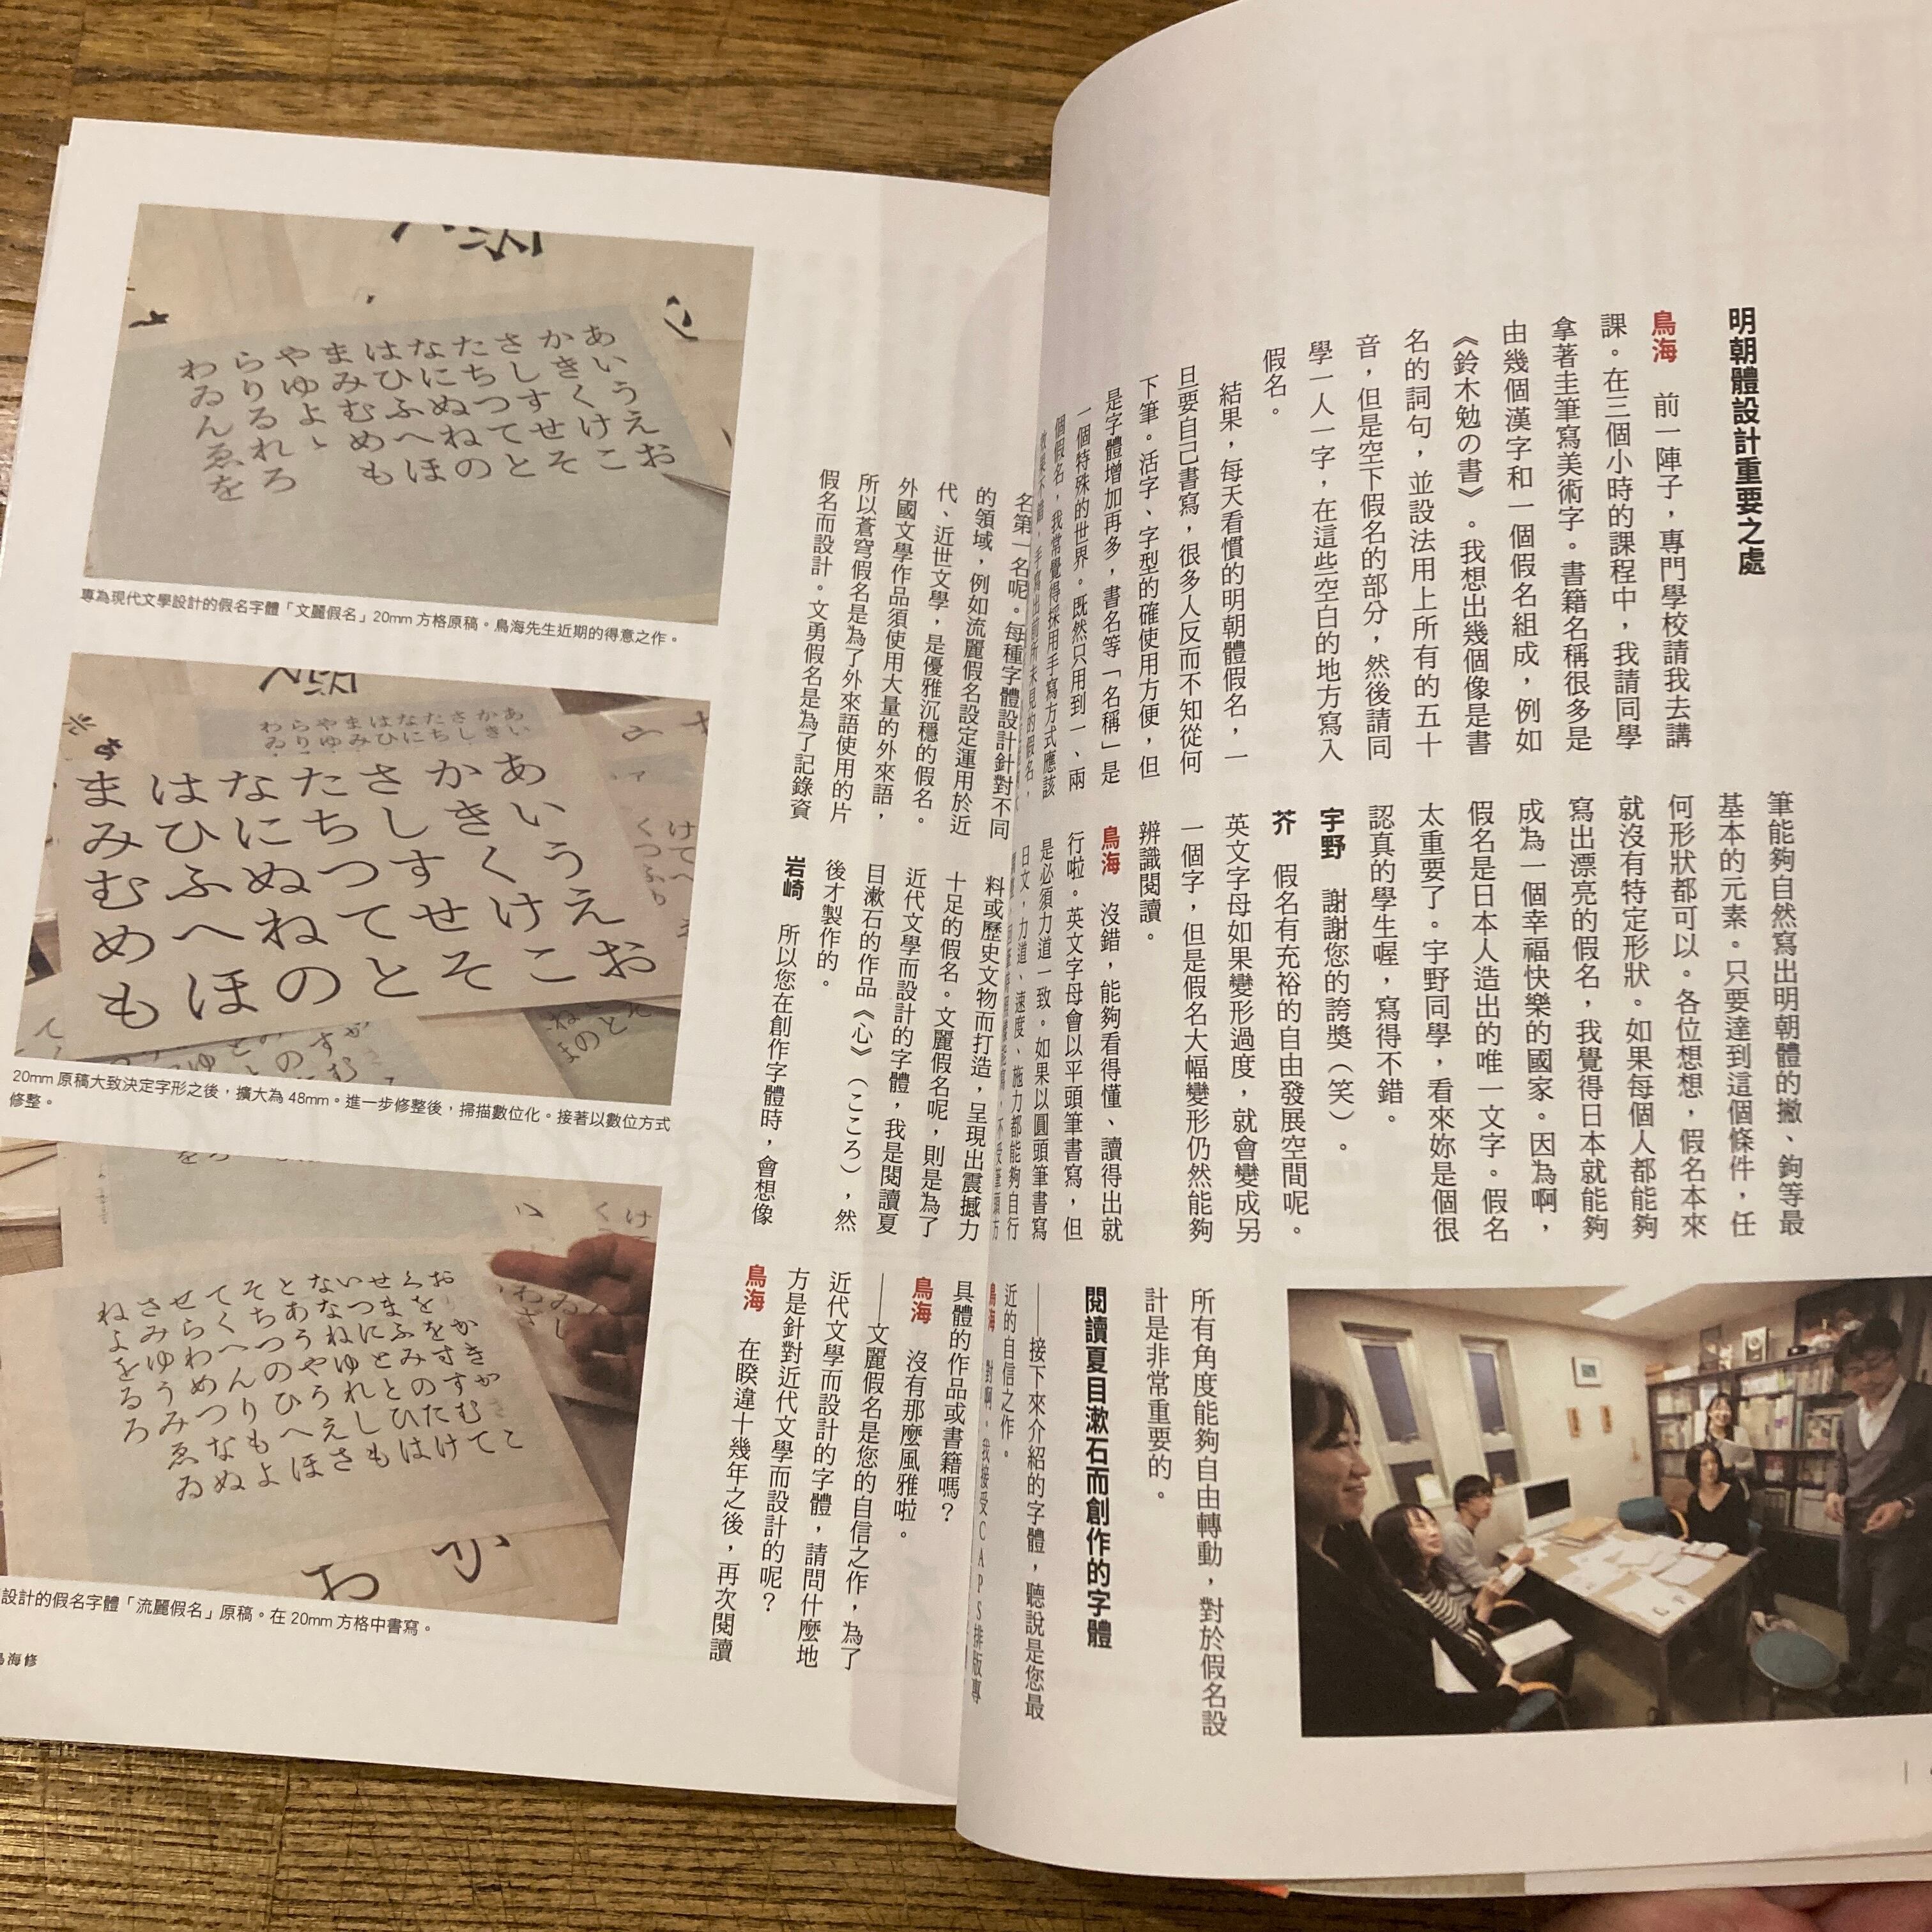 明朝體設計重要之處
鳥海　前一陣子，專門學校請我去講
課。在三個小時的課程中，我請同學
拿著圭筆寫美術字。書籍名稱很多是
由幾個漢字和一個假名組成，例如
《鈴木勉の書》。我想出幾個像是書
名的詞句，並設法用上所有的五十
音，但是空下假名的部分，然後請同
學一人一字，在這些空白的地方寫入
假名。
結果，每天看慣的明朝體假名，一
旦要自己書寫，很多人反而不知從何
下筆。活字、字型的確使用方便，但
是字體增加再多，書名等「名稱」是
一個特殊的世界。既然只用到一、兩
個假名，我常覺得採用手寫方式應該
手寫出前所未見的假名，
筆能夠自然寫出明朝體的撇、鉤等最
基本的元素。只要達到這個條件，任
何形狀都可以。各位想想，假名本來
就沒有特定形狀。如果每個人都能夠
寫出漂亮的假名，我覺得日本就能夠
成為一個幸福快樂的國家。因為啊，
假名是日本人造出的唯一文字。假名
太重要了。宇野同學，看來妳是個很
認真的學生喔，寫得不錯。
宇野　謝謝您的誇獎（笑）。
芥　假名有充裕的自由發展空間呢。
英文字母如果變形過度，就會變成另
一個字，但是假名大幅變形仍然能夠
辨識閱讀。
鳥海　沒錯，能夠看得懂、讀得出就
行啦。英文字母會以平頭筆書寫，但
是必須力道一致。如果以圓頭筆書寫
日文，力道、速度、施力都能夠自行
所有角度能夠自由轉動，對於假名設
計是非常重要的。
閱讀夏目漱石而創作的字體
——接下來介紹的字體，聽說是您最
近的自信之作。
鳥海　對啊，我接受CAPS排版專
名第一名呢。每種字體設計針對不同
的領域，例如流麗假名設定運用於近
代、近世文學，是優雅沉穩的假名。
外國文學作品須使用大量的外來語，
所以蒼穹假名是為了外來語使用的片
假名而設計。文勇假名是為了記錄資
料或歷史文物而打造，呈現出震撼力
十足的假名。文麗假名呢，則是為了
近代文學而設計的字體，我是閱讀夏
目漱石的作品《心》（こころ），然
後才製作的。
岩崎　所以您在創作字體時，會想像
具體的作品或書籍嗎？
鳥海　沒有那麼風雅啦。
——文麗假名是您的自信之作，為了
近代文學而設計的字體，請問什麼地
方是針對近代文學而設計的呢？
鳥海　在睽違十幾年之後，再次閱讀
あいうえお
かきくけこ
さしすせそ
たちつてと
なにぬねの
はひふへほ
まみむめも
やゆよ
らりるれろ
わゐんゑを
專為現代文學設計的假名字體「文麗假名」20mm 方格原稿。鳥海先生近期的得意之作。
あいうえお
かきくけこ
さしすせそ
たちつてと
なにぬねの
はひふへほ
まみむめも
20mm 原稿大致決定字形之後，擴大為 48mm。進一步修整後，掃描數位化。接著以數位方式
修整。
設計的假名字體「流麗假名」原稿。在 20mm 方格中書寫。
鳥海修